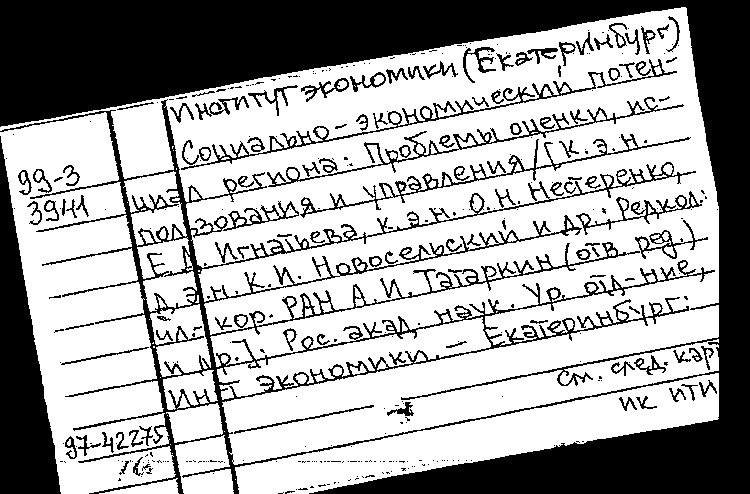 Институт экономики (Екатеринбург)
Социально-экономический потен-
99-3
3941
циал региона: Проблемы оценки, ис-
пользования и управления / [к.э.н.
Е.Д. Игнатьева, к.э.н. О.Н. Нестеренко,
д.э.н. К.И. Новосельский и др.; Редкол.:
чл.-кор. РАН А.И. Татаркин (отв. ред.)
и др.]; Рос. акад. наук. Ур. отд-ние,
Ин-т экономики. — Екатеринбург:
см. след. карт
97-42275
ИК ИТИ